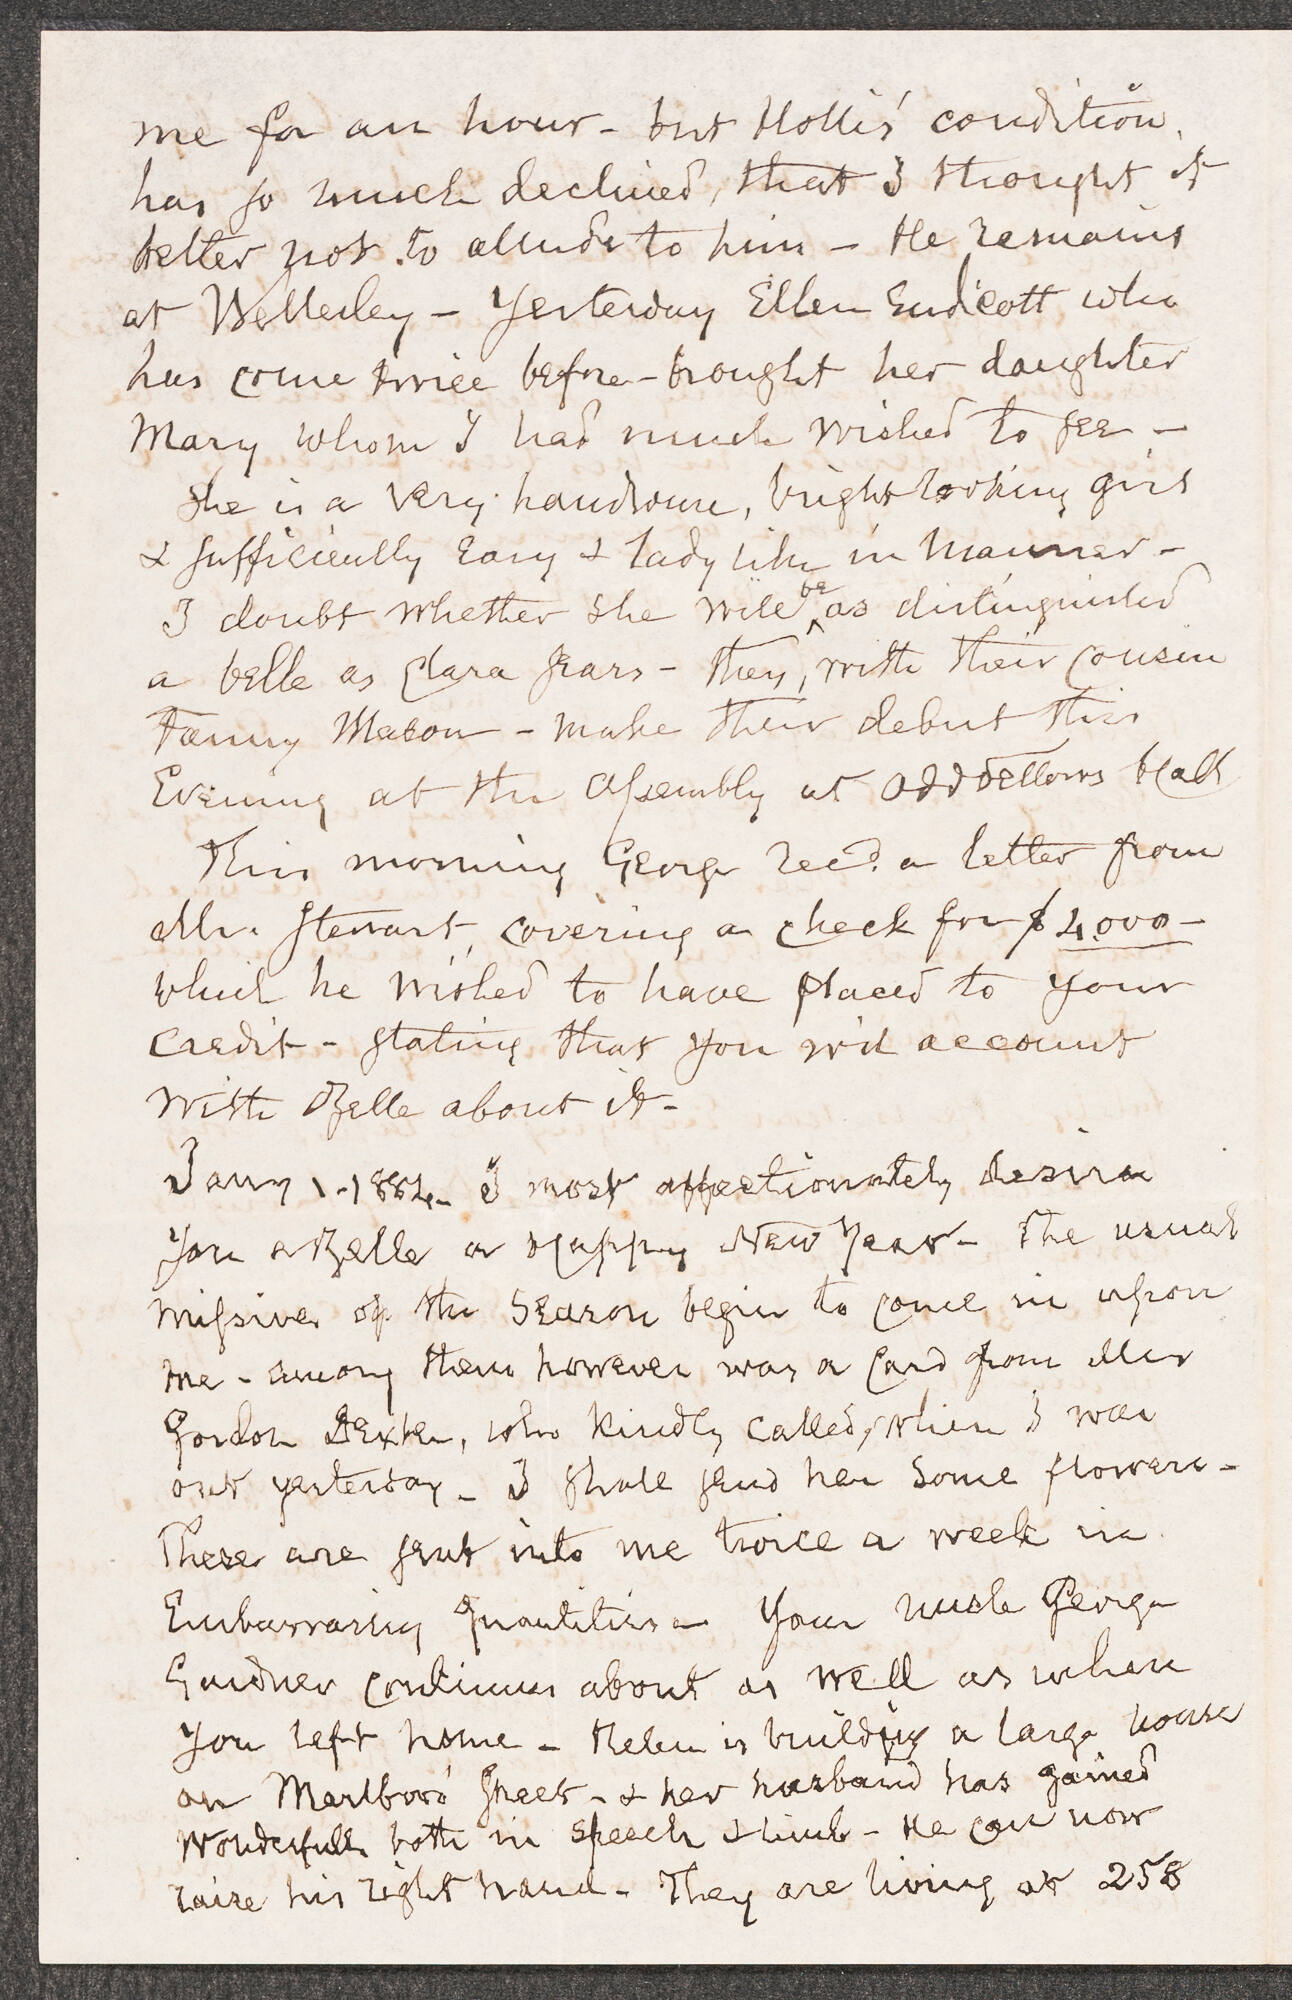 me for an hour - but Hollis' condition
has so much declined, that I thought it
better not to allude to him - He remains
at Wellesley - Yesterday Ellen Endicott who
has come twice before - brought her daughter
Mary whom I had much wished to see -
She is a very handsome, bright looking girl
& sufficiently easy & lady like in manner -
I doubt whether she will be as distinguished
a belle as Clara Sears - They, with their cousin
Fanny Mason - make their debut this
Evening at the Assembly at Oddfellows Hall
This morning George recd. a letter from
Mr. Stewart, covering a check for $4,000 -
which he wished to have placed to your
credit - stating that you wd account
with Belle about it -
Jany 1. 1884 - I most affectionately desire
you & Belle a Happy New Year - The usual
missives of the Season begin to come in upon
me - among them however was a Card from Mrs
Gordon Dexter, who kindly called, when I was
out yesterday - I shall send her some flowers -
These are sent into me twice a week in
Embarrassing quantities - Your uncle George
Gardner continues about as well as when
you left home - Helen is building a large house
on Marlboro' Street - & her husband has gained
wonderfully both in speech & limb - He can now
raise his right hand - They are living at 258